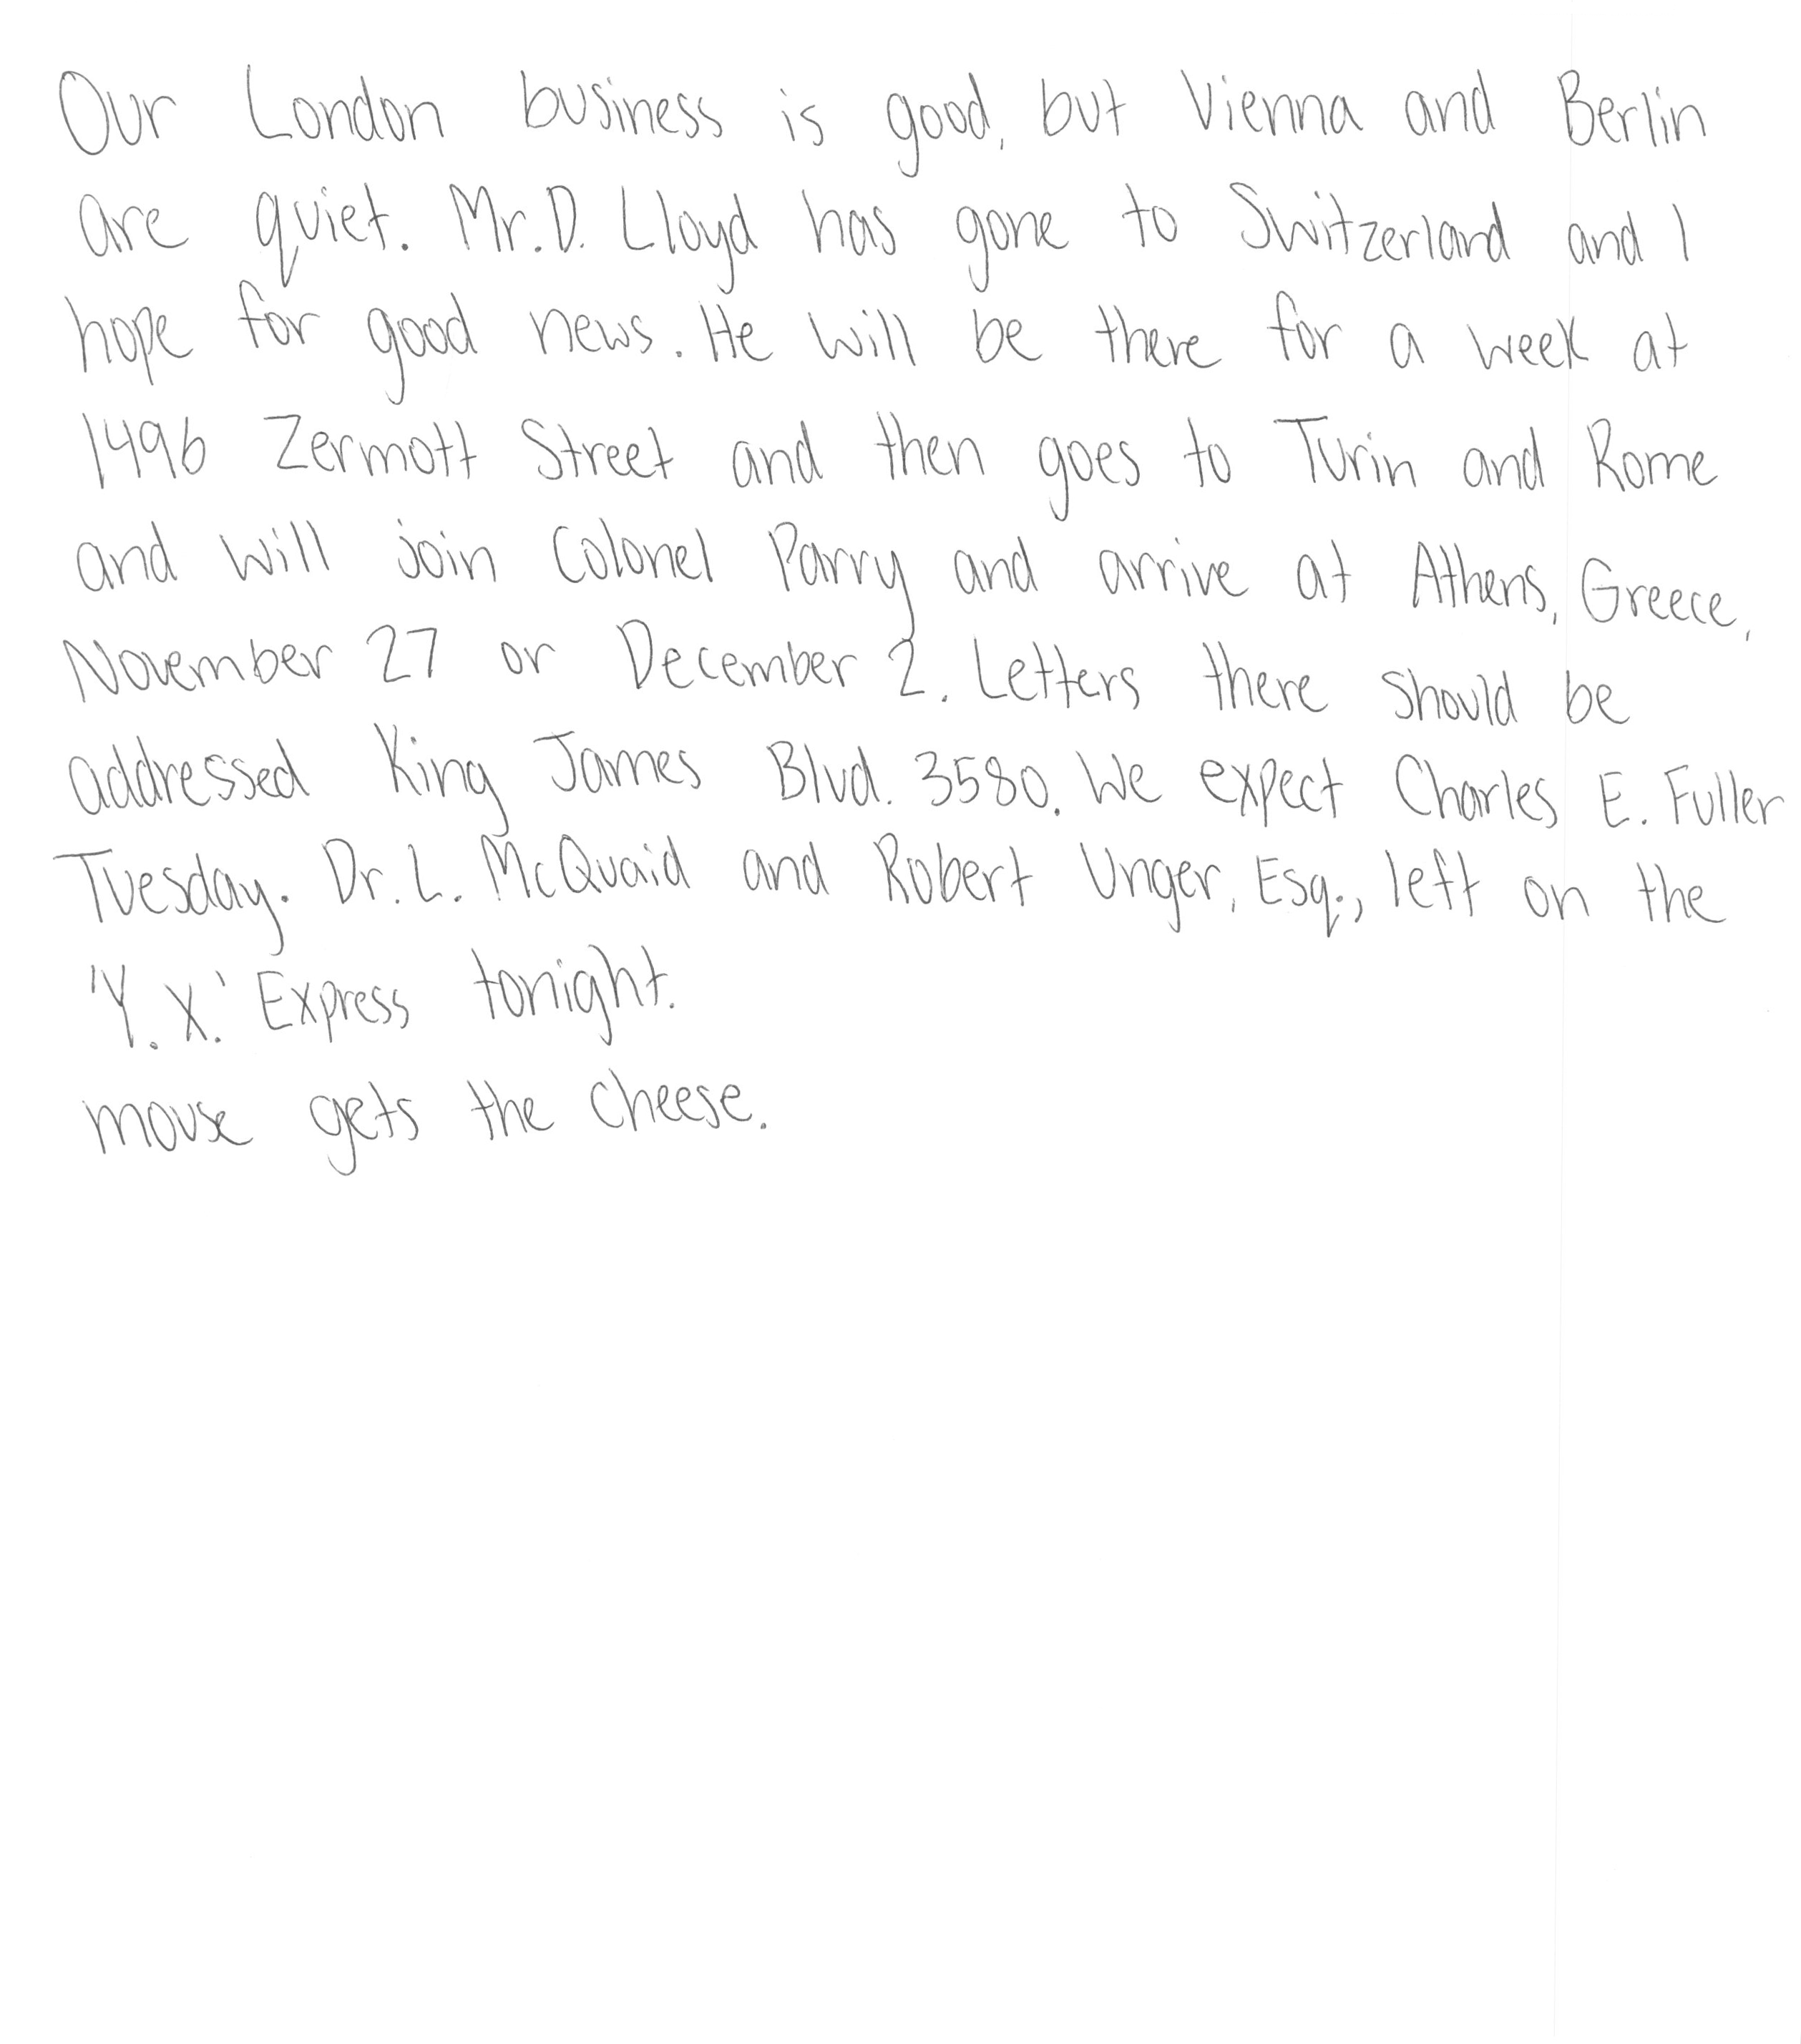 Our London business is good, but Vienna and Berlin
are quiet. Mr. D. Lloyd has gone to Switzerland and I
hope for good news. He will be there for a week at
1496 Zermott Street and then goes to Turin and Rome
and will join Colonel Parry and arrive at Athens, Greece,
November 27 or December 2. Letters there should be
addressed King James Blvd. 3580. We expect Charles E. Fuller
Tuesday. Dr. L. McQuaid and Robert Unger, Esq., left on the
'Y. X.' Express tonight.
mouse gets the cheese.